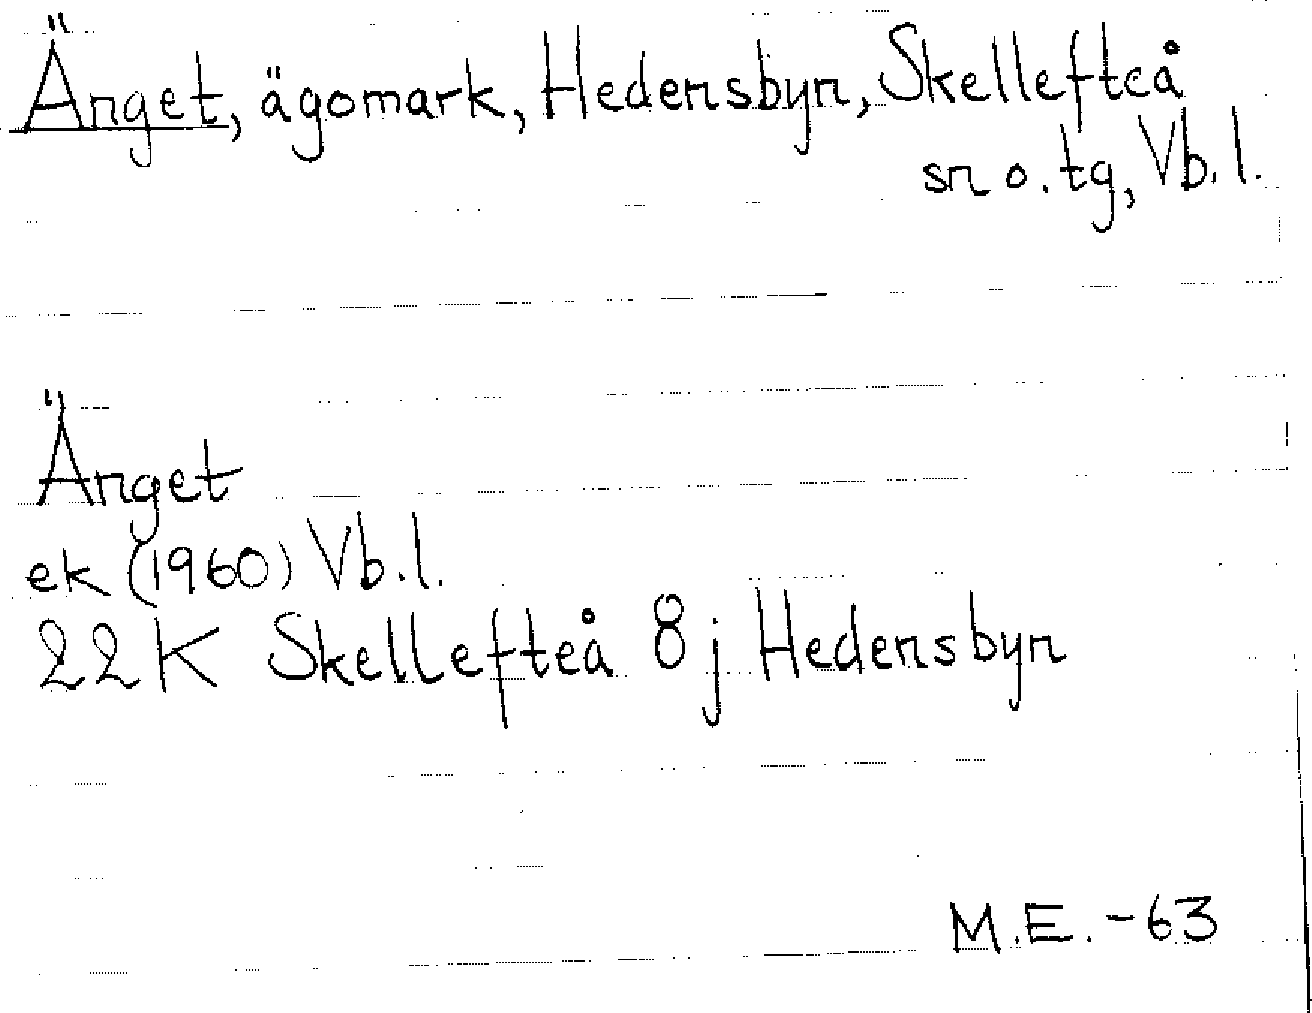 Änget, ägomark, Hedensbyn, Skellefteå
sn o. tg, Vb. l.
Änget
ek (1960) Vb. l.
22K Skellefteå 8j Hedensbyn
M.E. -63